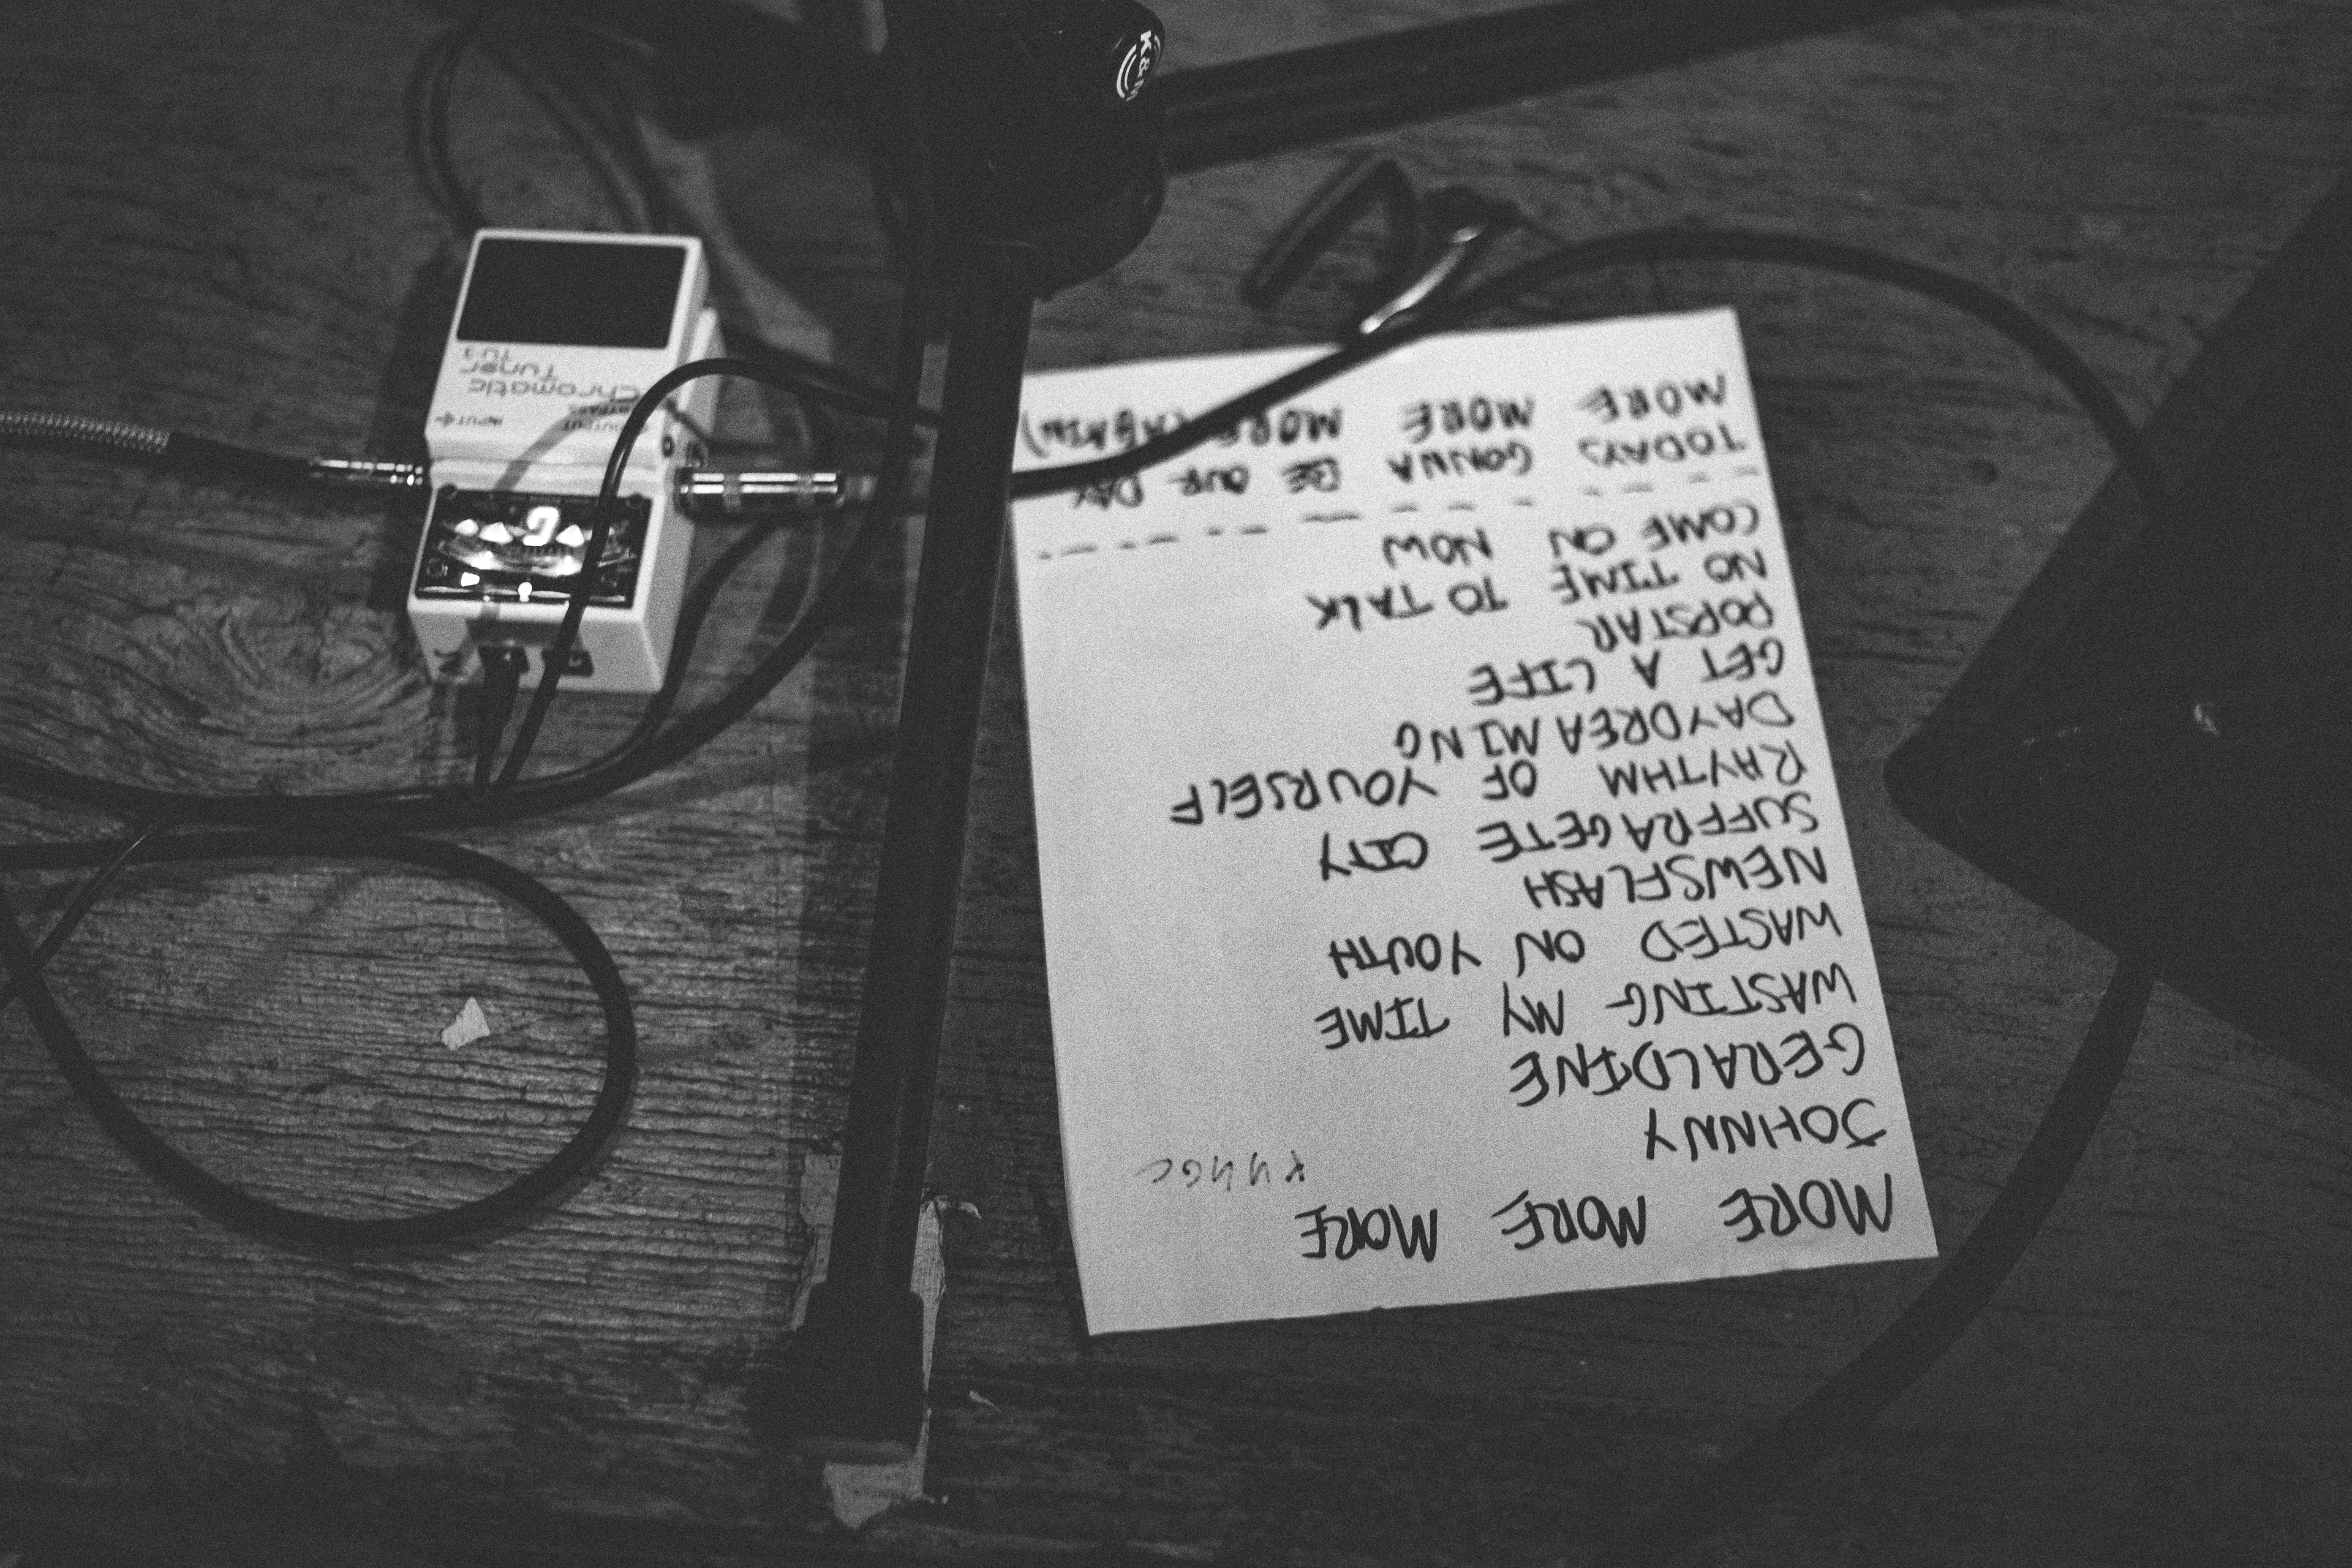 MORE MORE MORE
JOHNNY
GERALDINE
WASTING MY TIME
WASTED ON YOUTH
NEWSFLASH
SUFFRAGETE CITY
RHYTHM OF YOURSELF
DAYDREAMING
GET A LIFE
POPSTAR
NO TIME TO TALK
COME ON NOW
TODAYS GONNA BE OUR DAY
MORE MORE MORE MORE (AGAIN)
OUTPUT INPUT
BYPASS
Chromatic
Tuner
TU-3
K&M